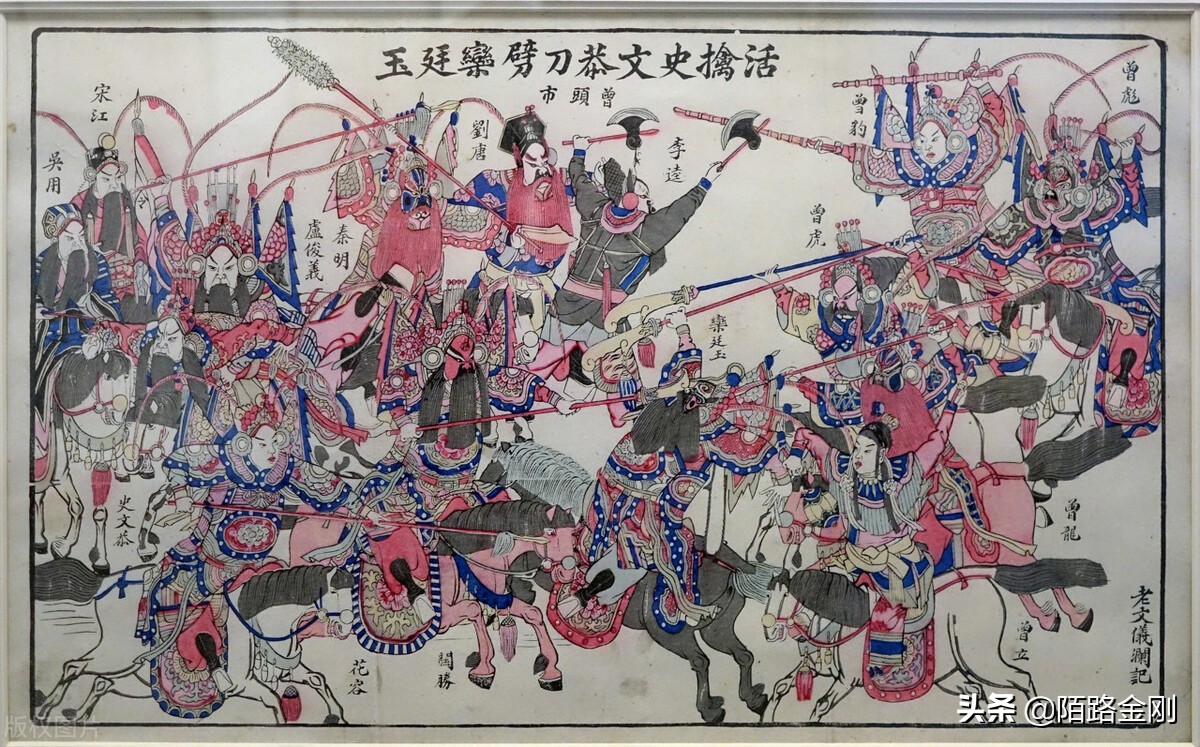 活擒史文恭刀劈欒廷玉
曾頭市
曾彪
曾豹
李逵
劉唐
宋江
吳用
曾虎
秦明
盧俊義
欒廷玉
史文恭
曾龍
曾立
闗勝
花容
老文儀瀾記
版权图片
头条 @陌路金刚